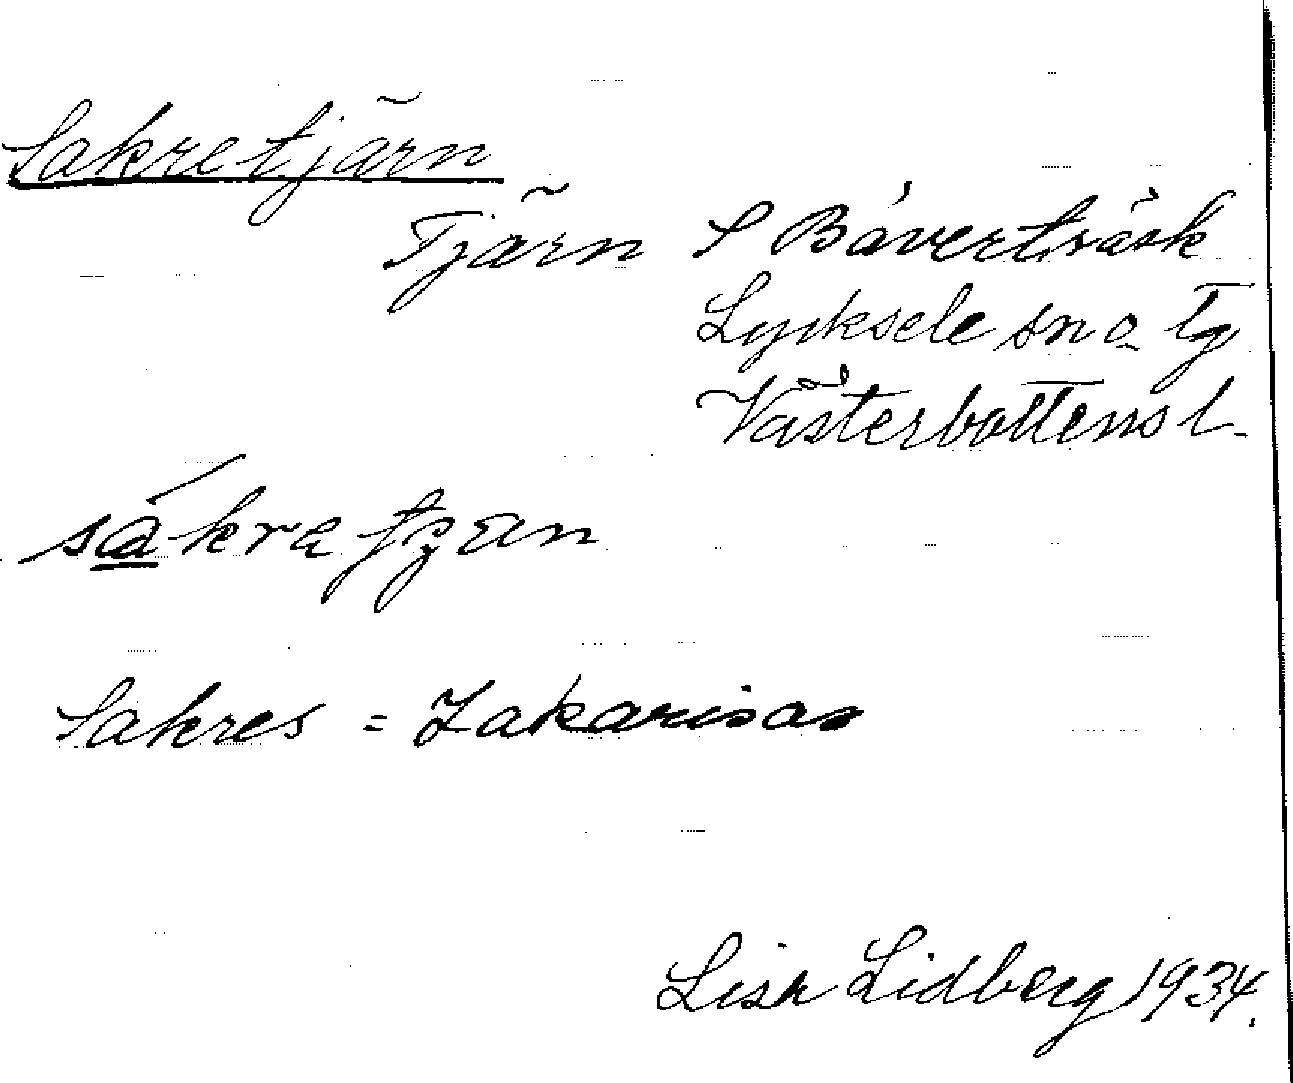 Sakretjärn
Tjärn S Bäverträsk
Lycksele sn o. tg
Västerbottens l.
sákra tȷ̌æn
Sakres = Zakarisas
Lisa Lidberg 1934.